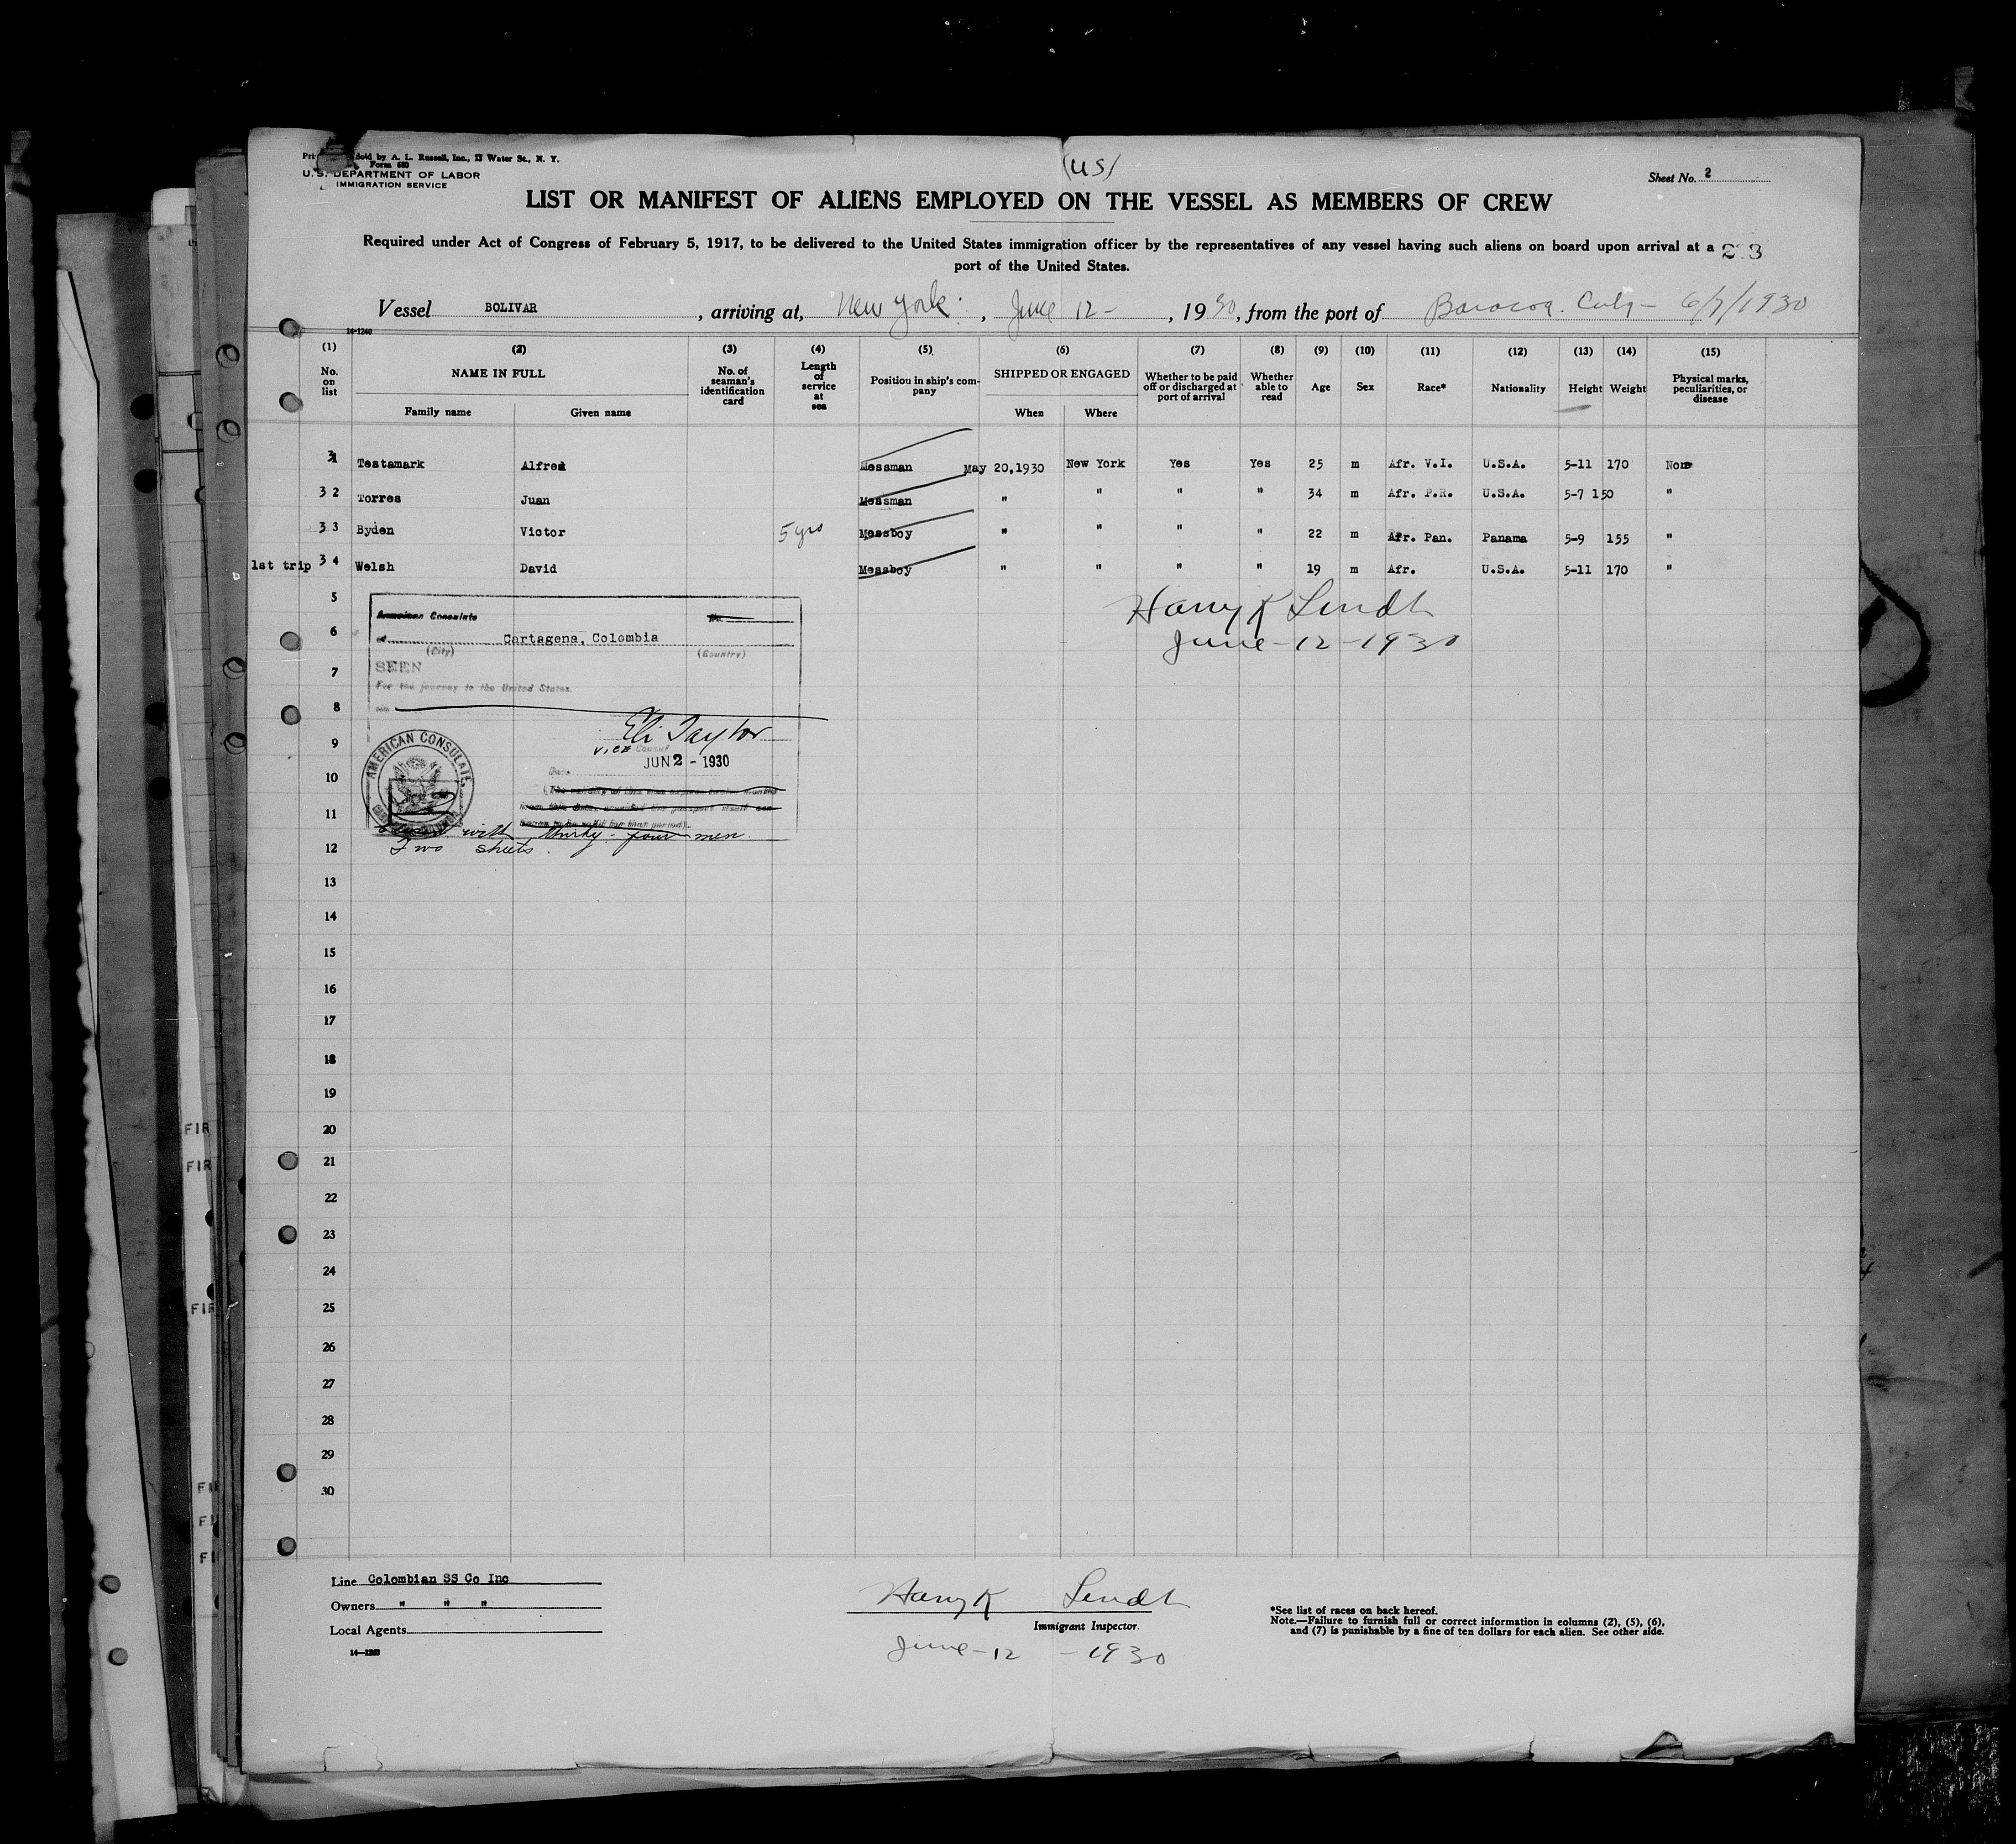 sold by A. L. Russell, Inc., 13 Water St., N. Y.
Form 680
U. S. DEPARTMENT OF LABOR
IMMIGRATION SERVICE
(US)
Sheet No. 2
LIST OR MANIFEST OF ALIENS EMPLOYED ON THE VESSEL AS MEMBERS OF CREW
Required under Act of Congress of February 5, 1917, to be delivered to the United States immigration officer by the representatives of any vessel having such aliens on board upon arrival at a
port of the United States.
Vessel BOLIVAR , arriving at, New York , June 12 - , 1930, from the port of Baracoa. Cuba - 6/7/1930
14-1240
(1) (2) (3) (4) (5) (6) (7) (8) (9) (10) (11) (12) (13) (14) (15)
No. on list NAME IN FULL No. of seaman's identification card Length of service at sea Position in ship's company SHIPPED OR ENGAGED Whether to be paid off or discharged at port of arrival Whether able to read Age Sex Race* Nationality Height Weight Physical marks, peculiarities, or disease
Family name Given name When Where
31 Testamark Alfred Messman May 20,1930 New York Yes Yes 25 m Afr. V.I. U.S.A. 5-11 170 None
32 Torres Juan Messman " " " " 34 m Afr. P.R. U.S.A. 5-7 150 "
33 Byden Victor 5 yrs Messboy " " " " 22 m Afr. Pan. Panama 5-9 155 "
1st trip 34 Welsh David Messboy " " " " 19 m Afr. U.S.A. 5-11 170 "
Harry K Lendt
June-12-1930
5
American Consulate
6
of Cartagena, Colombia
(City) (Country)
7
SEEN
For the journey to the United States.
8
Eli Taylor
9
Vice Consul
AMERICAN CONSULATE
JUN 2 - 1930
10
Date
11
with thirty-four men
12
Two sheets.
13
14
15
16
17
18
19
20
21
22
23
24
25
26
27
28
29
30
Line Colombian SS Co Inc
Owners " " "
Local Agents
14-1240
Harry K Lendt
Immigrant Inspector.
June-12-1930
*See list of races on back hereof.
Note.—Failure to furnish full or correct information in columns (2), (5), (6),
and (7) is punishable by a fine of ten dollars for each alien. See other side.
FIR
FIR